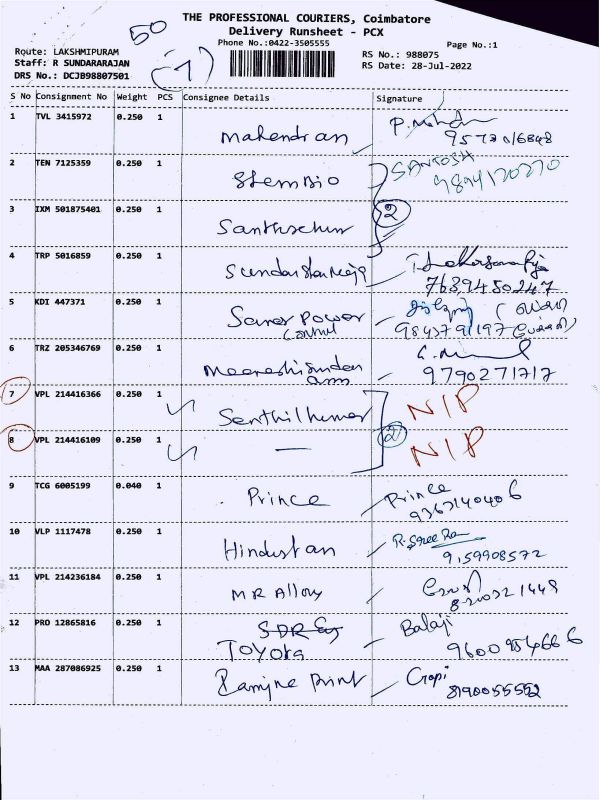 50
THE PROFESSIONAL COURIERS, Coimbatore
Delivery Runsheet - PCX
Phone No.:0422-3505555
Page No.:1
Route: LAKSHMIPURAM
Staff: R SUNDARARAJAN
DRS No.: DCJB98807501
(-1)
RS No.: 988075
RS Date: 28-Jul-2022
S No Consignment No Weight PCS Consignee Details Signature
1 TVL 3415972 0.250 1 Mahendran
2 TEN 7125359 0.250 1 Stembio SANTOSH 9894170270
3 IXM 501875401 0.250 1 2
4 TRP 5016859 0.250 1 7639450247
5 KDI 447371 0.250 1 Power Control 9843791197
6 TRZ 205346769 0.250 1 9790271717
7 VPL 214416366 0.250 1 Senthilkumar N/P
8 VPL 214416109 0.250 1 — 2 N/P
9 TCG 6005199 0.040 1 Prince Prince 9367140406
10 VLP 1117478 0.250 1 Hindustan R. Sree 9159908572
11 VPL 214236184 0.250 1 MR Alloy
12 PRO 12865816 0.250 1 Toyota Balaji
13 MAA 287086925 0.250 1 Print Gopi 8190055552